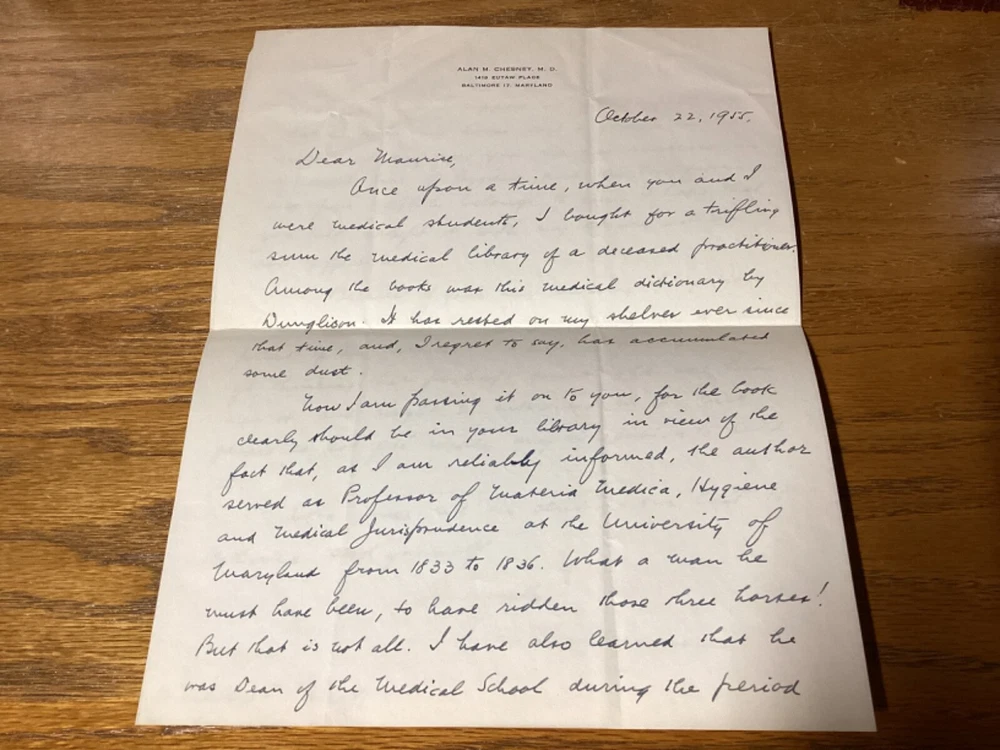 ALAN M. CHESNEY, M. D.
1419 EUTAW PLACE
BALTIMORE 17, MARYLAND
October 22, 1955.
Dear Maurice,
Once upon a time, when you and I
were medical students, I bought for a trifling
sum the medical library of a deceased practitioner.
Among the books was this medical dictionary by
Dunglison. It has rested on my shelves ever since
that time, and, I regret to say, has accumulated
some dust.
Now I am passing it on to you, for the book
clearly should be in your library in view of the
fact that, as I am reliably informed, the author
served as Professor of Materia Medica, Hygiene
and Medical Jurisprudence at the University of
Maryland from 1833 to 1836. What a man he
must have been, to have ridden those three horses!
But that is not all. I have also learned that he
was Dean of the Medical School during the period